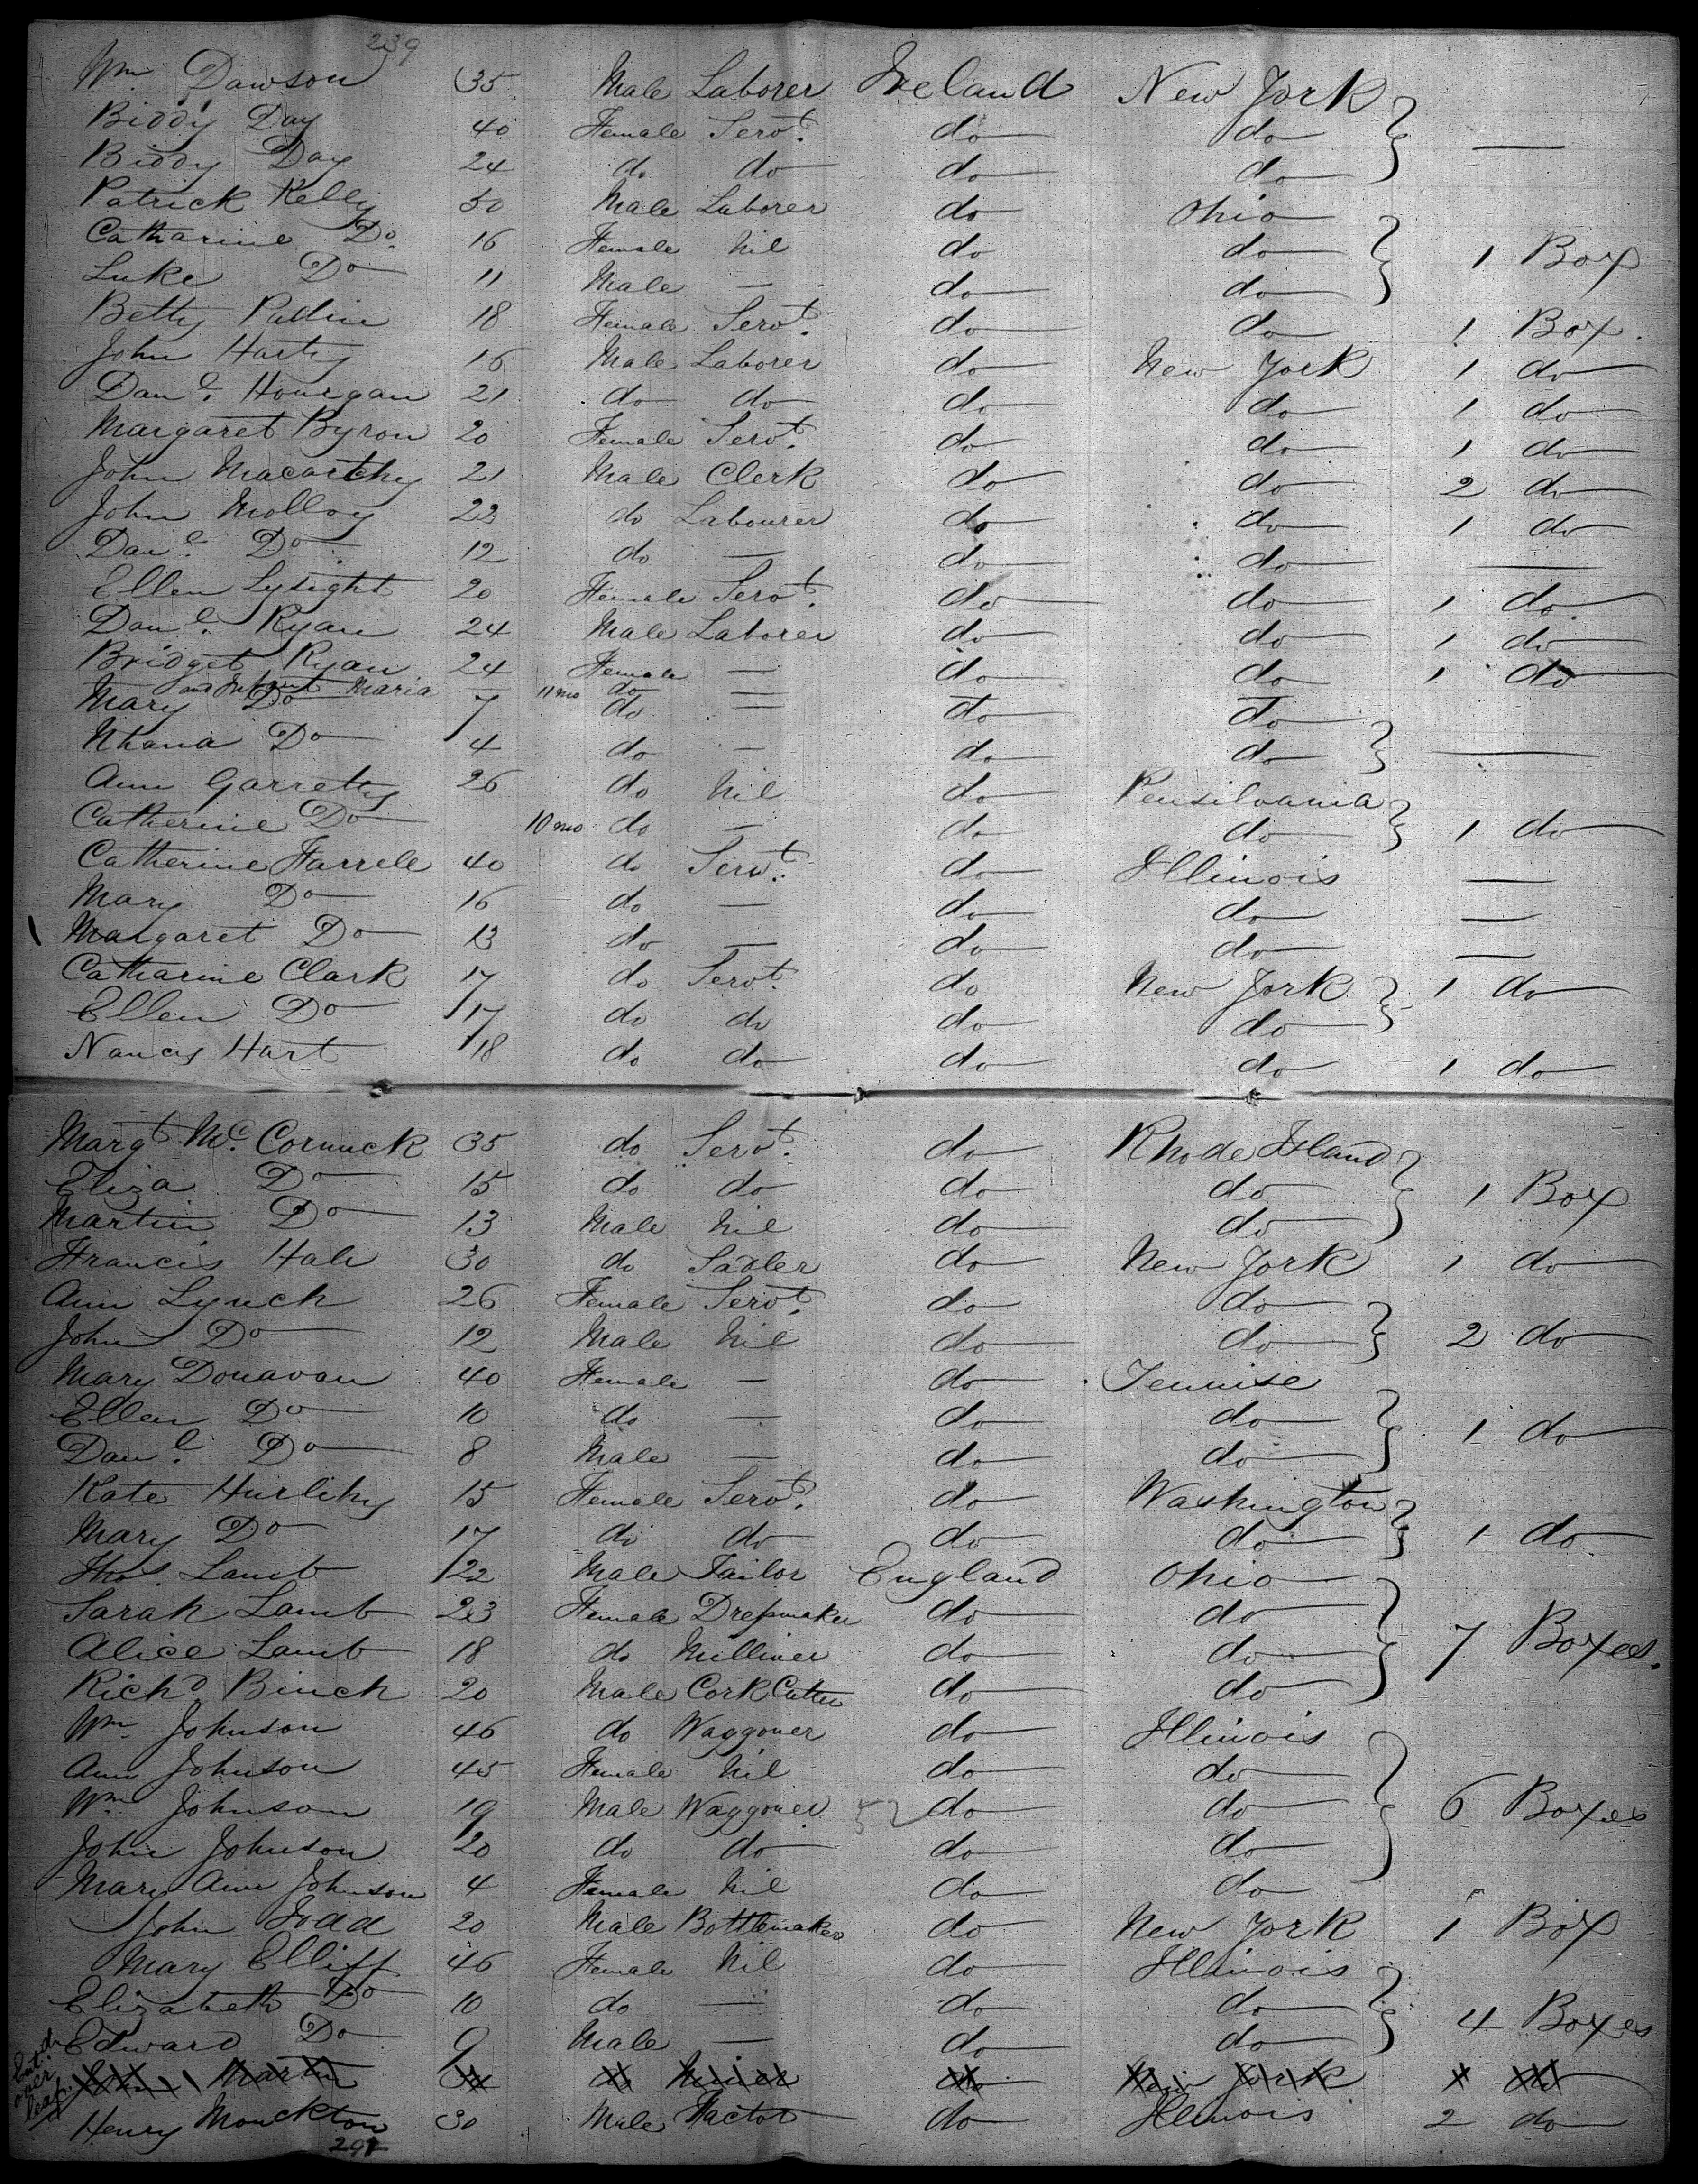 239
Wm. Dawson 35 Male Laborer Ireland New York
Biddy Day 40 Female Servt. do do —
Biddy Day 24 do do do do
Patrick Kelly 50 Male Laborer do Ohio
Catharine Do. 16 Female Nil do do 1 Box
Luke Do 11 Male — do do
Betty 18 Female Servt. do do 1 Box.
John Harty 16 Male Laborer do New York 1 do
Danl. Hourgan 21 do do do do 1 do
Margaret Byron 20 Female Servt. do do 1 do
John Macarthy 21 Male Clerk do do 2 do
John Molloy 22 do Labourer do do 1 do
Danl. Do 12 do — do do —
Ellen Lysight 20 Female Servt. do do 1 do
Danl. Ryan 24 Male Laborer do do 1 do
Bridget Ryan 24 Female — do do 1 do
and Infant Maria 11 mo do —
Mary Do 7 do — do do
Nhana Do 4 do — do do —
Ann Garretty 26 do Nil do Pensilvania
Catherine Do 10 mo do — do do 1 do
Catherine Farrele 40 do Servt. do Illinois —
Mary Do 16 do — do do —
Margaret Do 13 do — do do —
Catharine Clark 17 do Servt. do New York 1 do
Ellen Do 17 do do do do
Nancy Hart 18 do do do do 1 do
Margt McCormick 35 do Servt. do Rhode Island
Eliza Do 15 do do do do 1 Box
Martin Do 13 Male Nil do do
Francis Hale 30 do Sadler do New York 1 do
Ann Lynch 26 Female Servt. do do
John Do 12 Male Nil do do 2 do
Mary Donavan 40 Female — do Tennise
Ellen Do 10 do — do do 1 do
Danl. Do 8 Male — do do
Kate Hurlihy 15 Female Servt. do Washington
Mary Do 17 do do do do 1 do
Thos. Lamb 22 Male Tailor England Ohio
Sarah Lamb 23 Female Dressmaker do do
Alice Lamb 18 do Milliner do do 7 Boxes.
Richd Binch 20 Male Cork Cutter do do
Wm. Johnson 46 do Waggoner do Illinois
Ann Johnson 45 Female Nil do do
Wm. Johnson 19 Male Waggoner 52 do do 6 Boxes
John Johnson 20 do do do do
Mary Ann Johnson 4 Female Nil do do
John Todd 20 Male Bottlemaker do New York 1 Box
Mary Elliff 46 Female Nil do Illinois
Elizabeth Do 10 do — do do 4 Boxes
Edward Do 9 Male — do do
over leaf. John Martin do Miner do New York do
Henry Monckton 30 Male Factor do Illinois 2 do